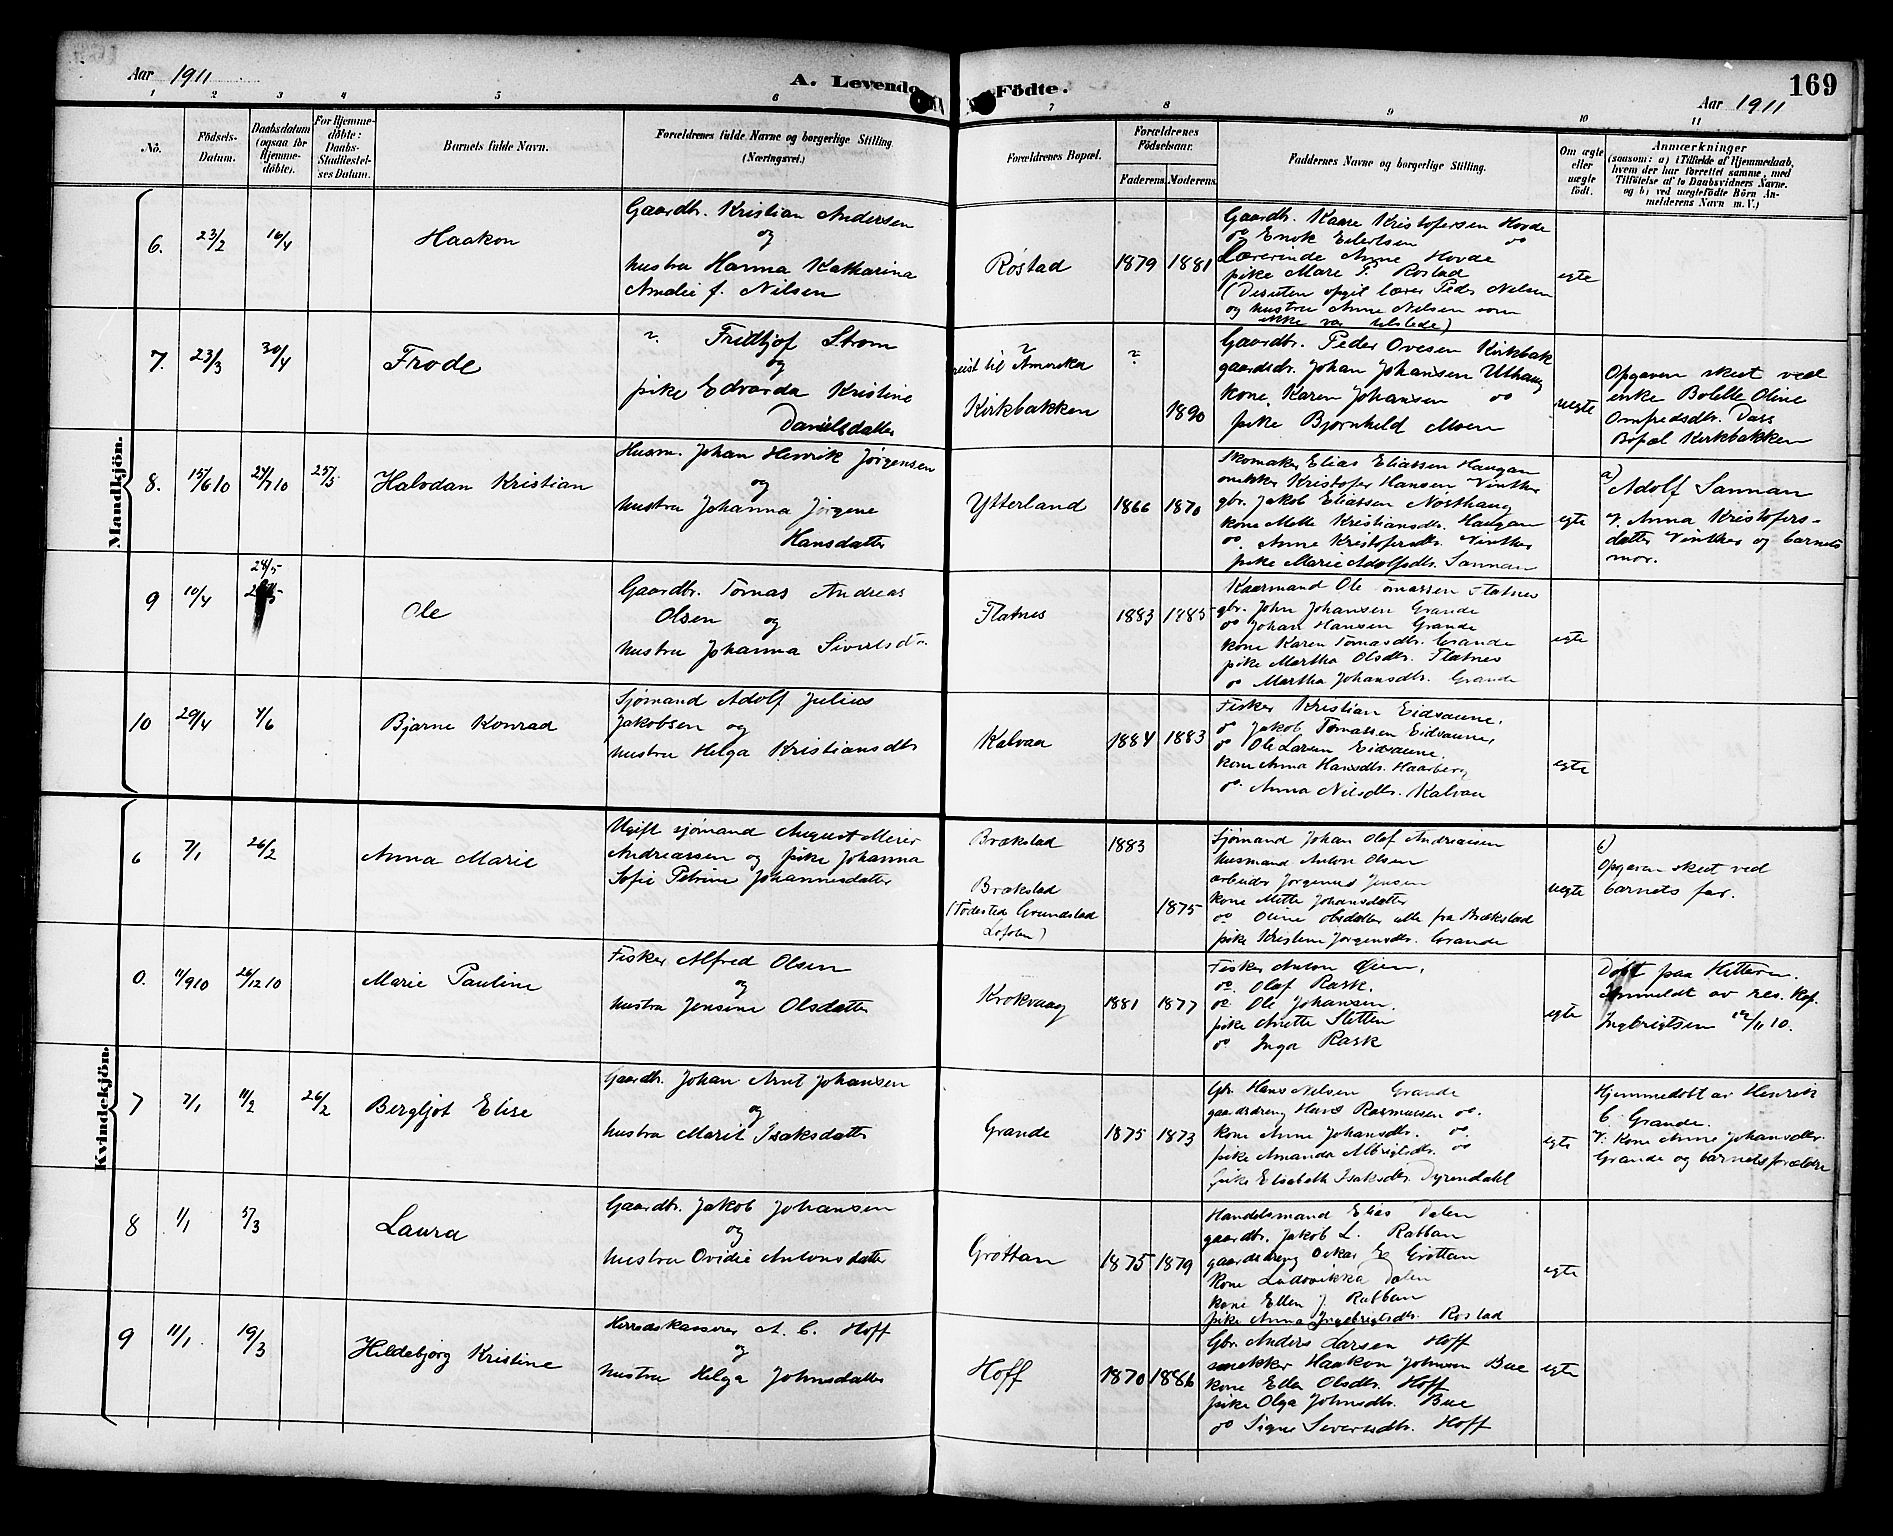 Aar 1911
A. Levende Födte.
169
Aar 1911
1 2 3 4 5 6 7 8 9 10 11
No.
Födsels-Datum.
Daabsdatum (ogsaa for Hjemmedöbte).
For Hjemmedöbte: Daabs-Stadfæstelses Datum.
Barnets fulde Navn.
Forældrenes fulde Navne og borgerlige Stilling (Næringsvei.)
Forældrenes Bopæl.
Forældrenes Födselsaar.
Faderens. Moderens.
Faddernes Navne og borgerlige Stilling.
Om ægte eller uægte födt.
Anmærkninger
(saasom: a) i Tilfælde af Hjemmedaab, hvem der har forrettet samme, med Tilföielse af to Daabsvidners Navne. og b) ved uægtefödte Börn Anmelderens Navn m. V.)
Mandkjön.
6. 23/2 16/4 Haakon
Gaardbr. Kristian Andersen
og
hustru Hanna Katharina
Amalie f. Nilsen
Røstad 1879 1881
Gaardbr. Kaare Kristofersen Hovde
do Enok Eilertsen do
Lærerinde Anne Hovde
pike Mare P. Røstad
(Desuten opgit lærer Peder Nilsen
og hustru Anne Nilsen som
ikke var tilstede)
egte
7. 23/3 30/4 Frode
? Fridtjof Strøm
og
pike Edvarda Kristine
Danielsdatter
?
reist til Amerika ?
Kirkbakken 1890
Gaardbr. Peder Ovesen Kirkbak
gaardbr. Johan Johansen Uthaug
kone Karen Johansen do
pike Bjørnhild Moen
uegte
Opgaven skeet ved
enke Bolette Oline
Omfredsdtr. Dass
Bopæl Kirkbakken
8. 15/6 10 24/7 10 25/5 Halvdan Kristian
Husm. Johan Henrik Jørgensen
og
hustru Johanna Jørgine
Hansdatter
Ytterland 1866 1870
Skomaker Elias Eliassen Haugan
snekker Kristofer Hansen Vinther
gbr. Jakob Eliassen Nosthaug
kone Mette Kristiansdtr. Haugan
do. Anne Kristofersdtr. Vinther
pike Marie Adolfsdtr. Sannan
egte
a)
Adolf Sannan
v. Anna Kristofers-
datter Vinther og barnets
mor.
9 10/4 28/5 Ole
Gaardbr. Tomas Andreas
Olsen og
hustru Johanna Sivertsdtr.
Flatnes 1883 1885
Kaarmand Ole Tomassen Flatnes
gbr. John Johansen Grande
do Johan Hansen Grande
kone Karen Tomasdtr. Grande
pike Martha Olsdtr. Flatnes
do Martha Johansdtr. Grande
egte
10 29/4 4/6 Bjarne Konrad
Sjømand Adolf Julius
Jakobsen og
hustru Helga Kristiansdtr
Kalvaa 1884 1883
Fisker Kristian Eidsaune,
do Jakob Tomassen Eidsaune,
do Ole Larsen Eidsaune,
kone Anna Hansdtr. Haarberg
do. Anna Nilsdtr. Kalvaa
egte
Kvindekjön.
6 7/1 26/2 Anna Marie
Ugift sjømand August Meier
Andreassen og pike Johanna
Sofie Petrine Johannesdatter
Brækstad 1883
Brækstad
(Fødested Grundstad 1875
Lofoten)
Sjømand Johan Olaf Andreassen
husmand Anton Olsen
arbeider Jørginus Jensen
kone Mette Johansdatter
do. Oline Olsdatter alle fra Brækstad
pike Kristine Jørgensdtr. Grande
uegte
b)
Opgaven skeet ved
barnets far.
0. 11/9 10 26/12 10 Marie Pauline
Fisker Alfred Olsen
og
hustru Jensine Olsdatter
Krokvaag 1881 1877
Fisker Anton Øien,
do. Olaf Rask,
do. Ole Johansen,
pike Anette Sletten
do Inga Rask
egte
Døbt paa Hitteren.
Anmeldt av res. Kap.
Ingbrigtsen 12/11 10.
7 7/1 11/2 26/2 Bergljot Elise
Gaardbr. Johan Arnt Johansen
og
hustru Marit Isaksdatter
Grande 1875 1873
Gbr. Hans Nilsen Grande
gaardsdreng Hans Rasmussen do.
kone Anne Johansdtr. do.
pike Amanda Albrigtsdtr. do
pike Elisabeth Isaksdtr. Dyrendahl
egte
Hjemmedøbt av Henrik
C. Grande.
v. Kone Anne Johansdtr.
Grande og barnets forældre
8 1/1 5/3 Laura
Gaardbr. Jakob Johansen
og
hustru Ovidie Antonsdatter
Grøttan 1875 1879
Handelsmand Elias Dalen
gaardbr. Jakob L. Rabban
gaardsdreng Oskar E Grøttan
kone Ludovikka Dalen
kone Ellen J. Rabban
pike Anna Ingebrigtsdtr. Røstad
egte
9 11/1 19/3 Hildebjørg Kristine
Herredskasserer A. C. Hoff
og
hustru Helga Johnsdatter
Hoff 1870 1886
Gbr. Anders Larsen Hoff
snekker Haakon Johnsen Bue
kone Ellen Olsdtr. Hoff
pike Olga Johnsdtr. Bue
do Signe Sivertsdtr. Hoff
egte